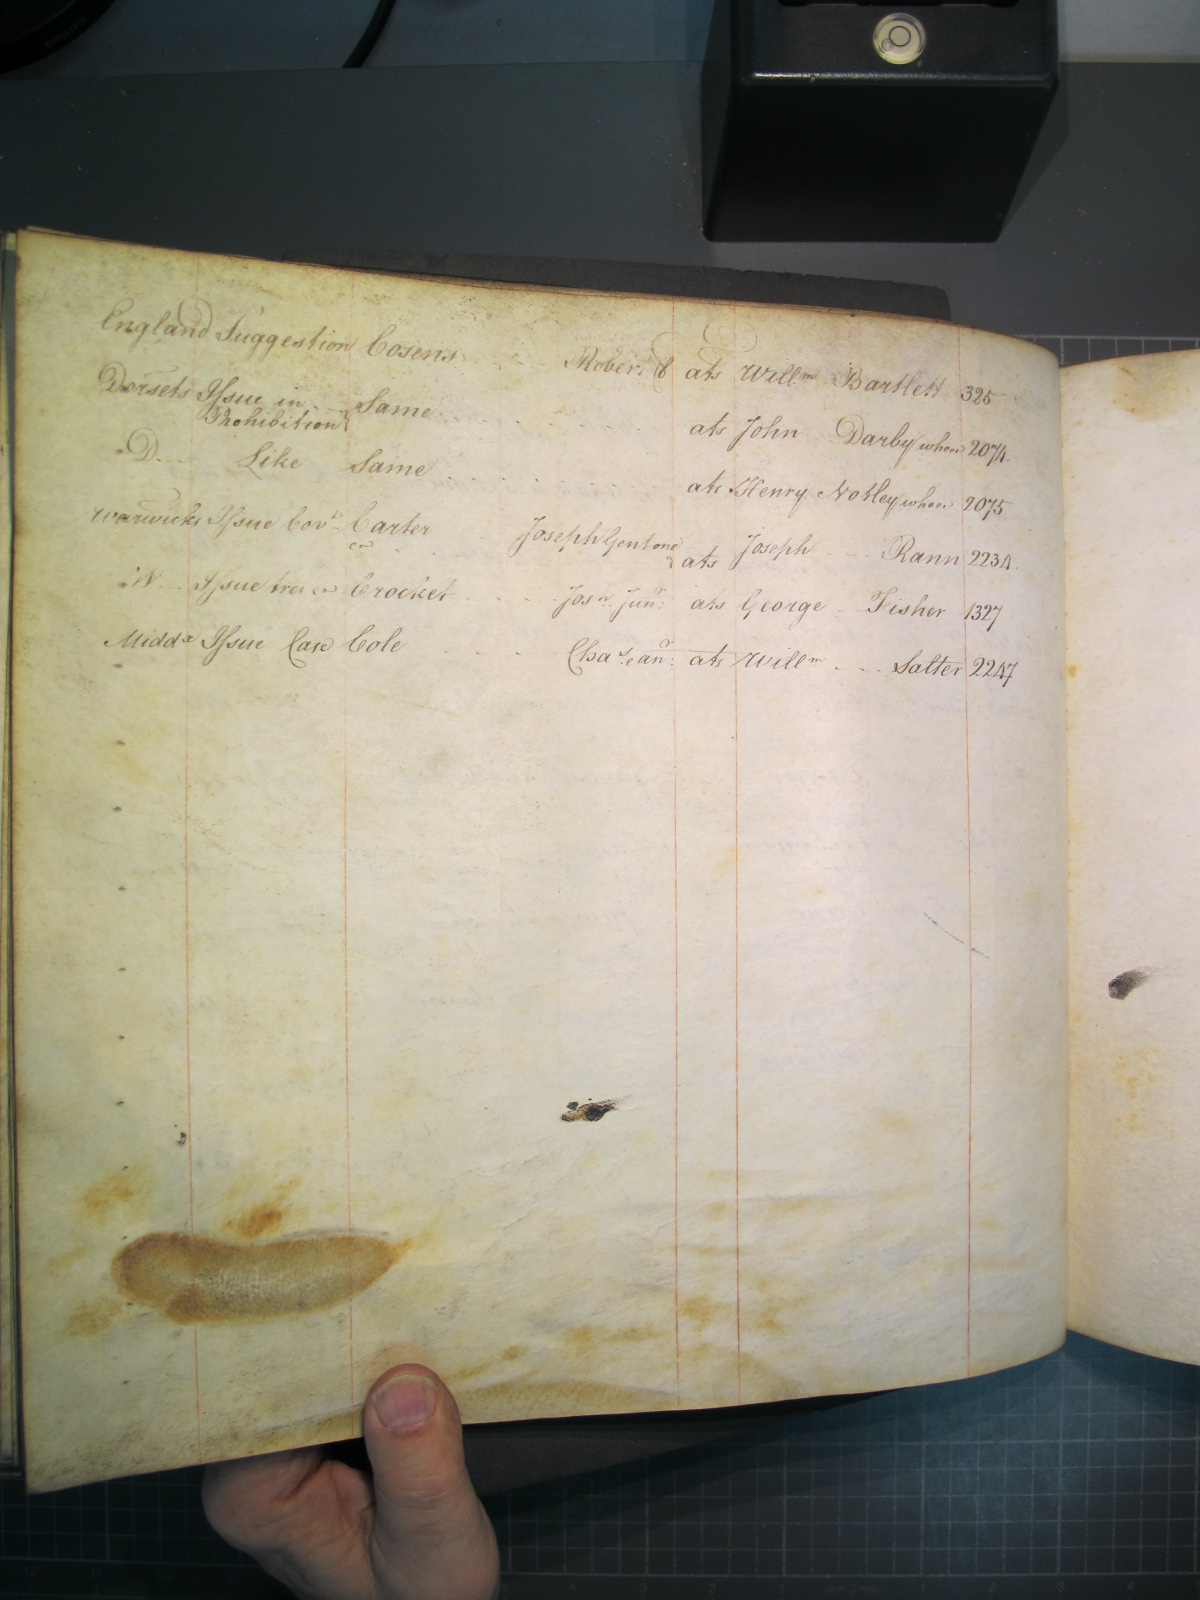 England Suggestion Cosens Robert ats Willm Bartlett 325
Dorsets Issue in Prohibition Same ats John Darby 2074
D Like Same ats Henry Notley 2075
Warwicks Issue Covt Carter Joseph Gent one ats Joseph Rann 2234
W Issue tres Crocket Josh Junr ats George Fisher 1327
Middx Issue Case Cole Chas ats Willm Salter 2247